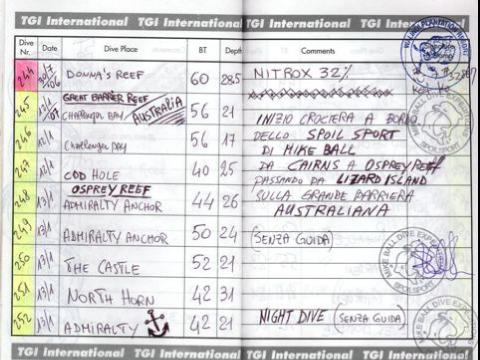 TGI International TGI International TGI International TGI International TGI International
Dive Nr. Date Dive Place BT Depth Comments
244 20/7/06 DONNA'S REEF 60 28.5 NITROX 32%
245 GREAT BARRIER REEF AUSTRALIA
CHALLENGER BAY 56 21 INIZIO CROCIERA A BORDO
246 12/1 Challenger Bay 56 17 DELLO SPOIL SPORT
DI MIKE BALL
247 12/1 COD HOLE 40 25 DA CAIRNS A OSPREY REEF
PASSANDO DA LIZARD ISLAND
248 13/1 OSPREY REEF
ADMIRALTY ANCHOR 44 26 SULLA GRANDE BARRIERA
AUSTRALIANA
249 13/1 ADMIRALTY ANCHOR 50 24 (SENZA GUIDA)
250 13/1 THE CASTLE 52 21
251 13/1 NORTH HORN 42 31
252 13/1 ADMIRALTY 42 21 NIGHT DIVE (SENZA GUIDA)
WALINDI PLANTATION RESORT
MIKE BALL DIVE EXPEDITIONS
SPOILSPORT
MIKE BALL DIVE EXPEDITIONS
SPOILSPORT
MIKE BALL DIVE EXPEDITIONS
TGI International TGI International TGI International TGI International TGI International